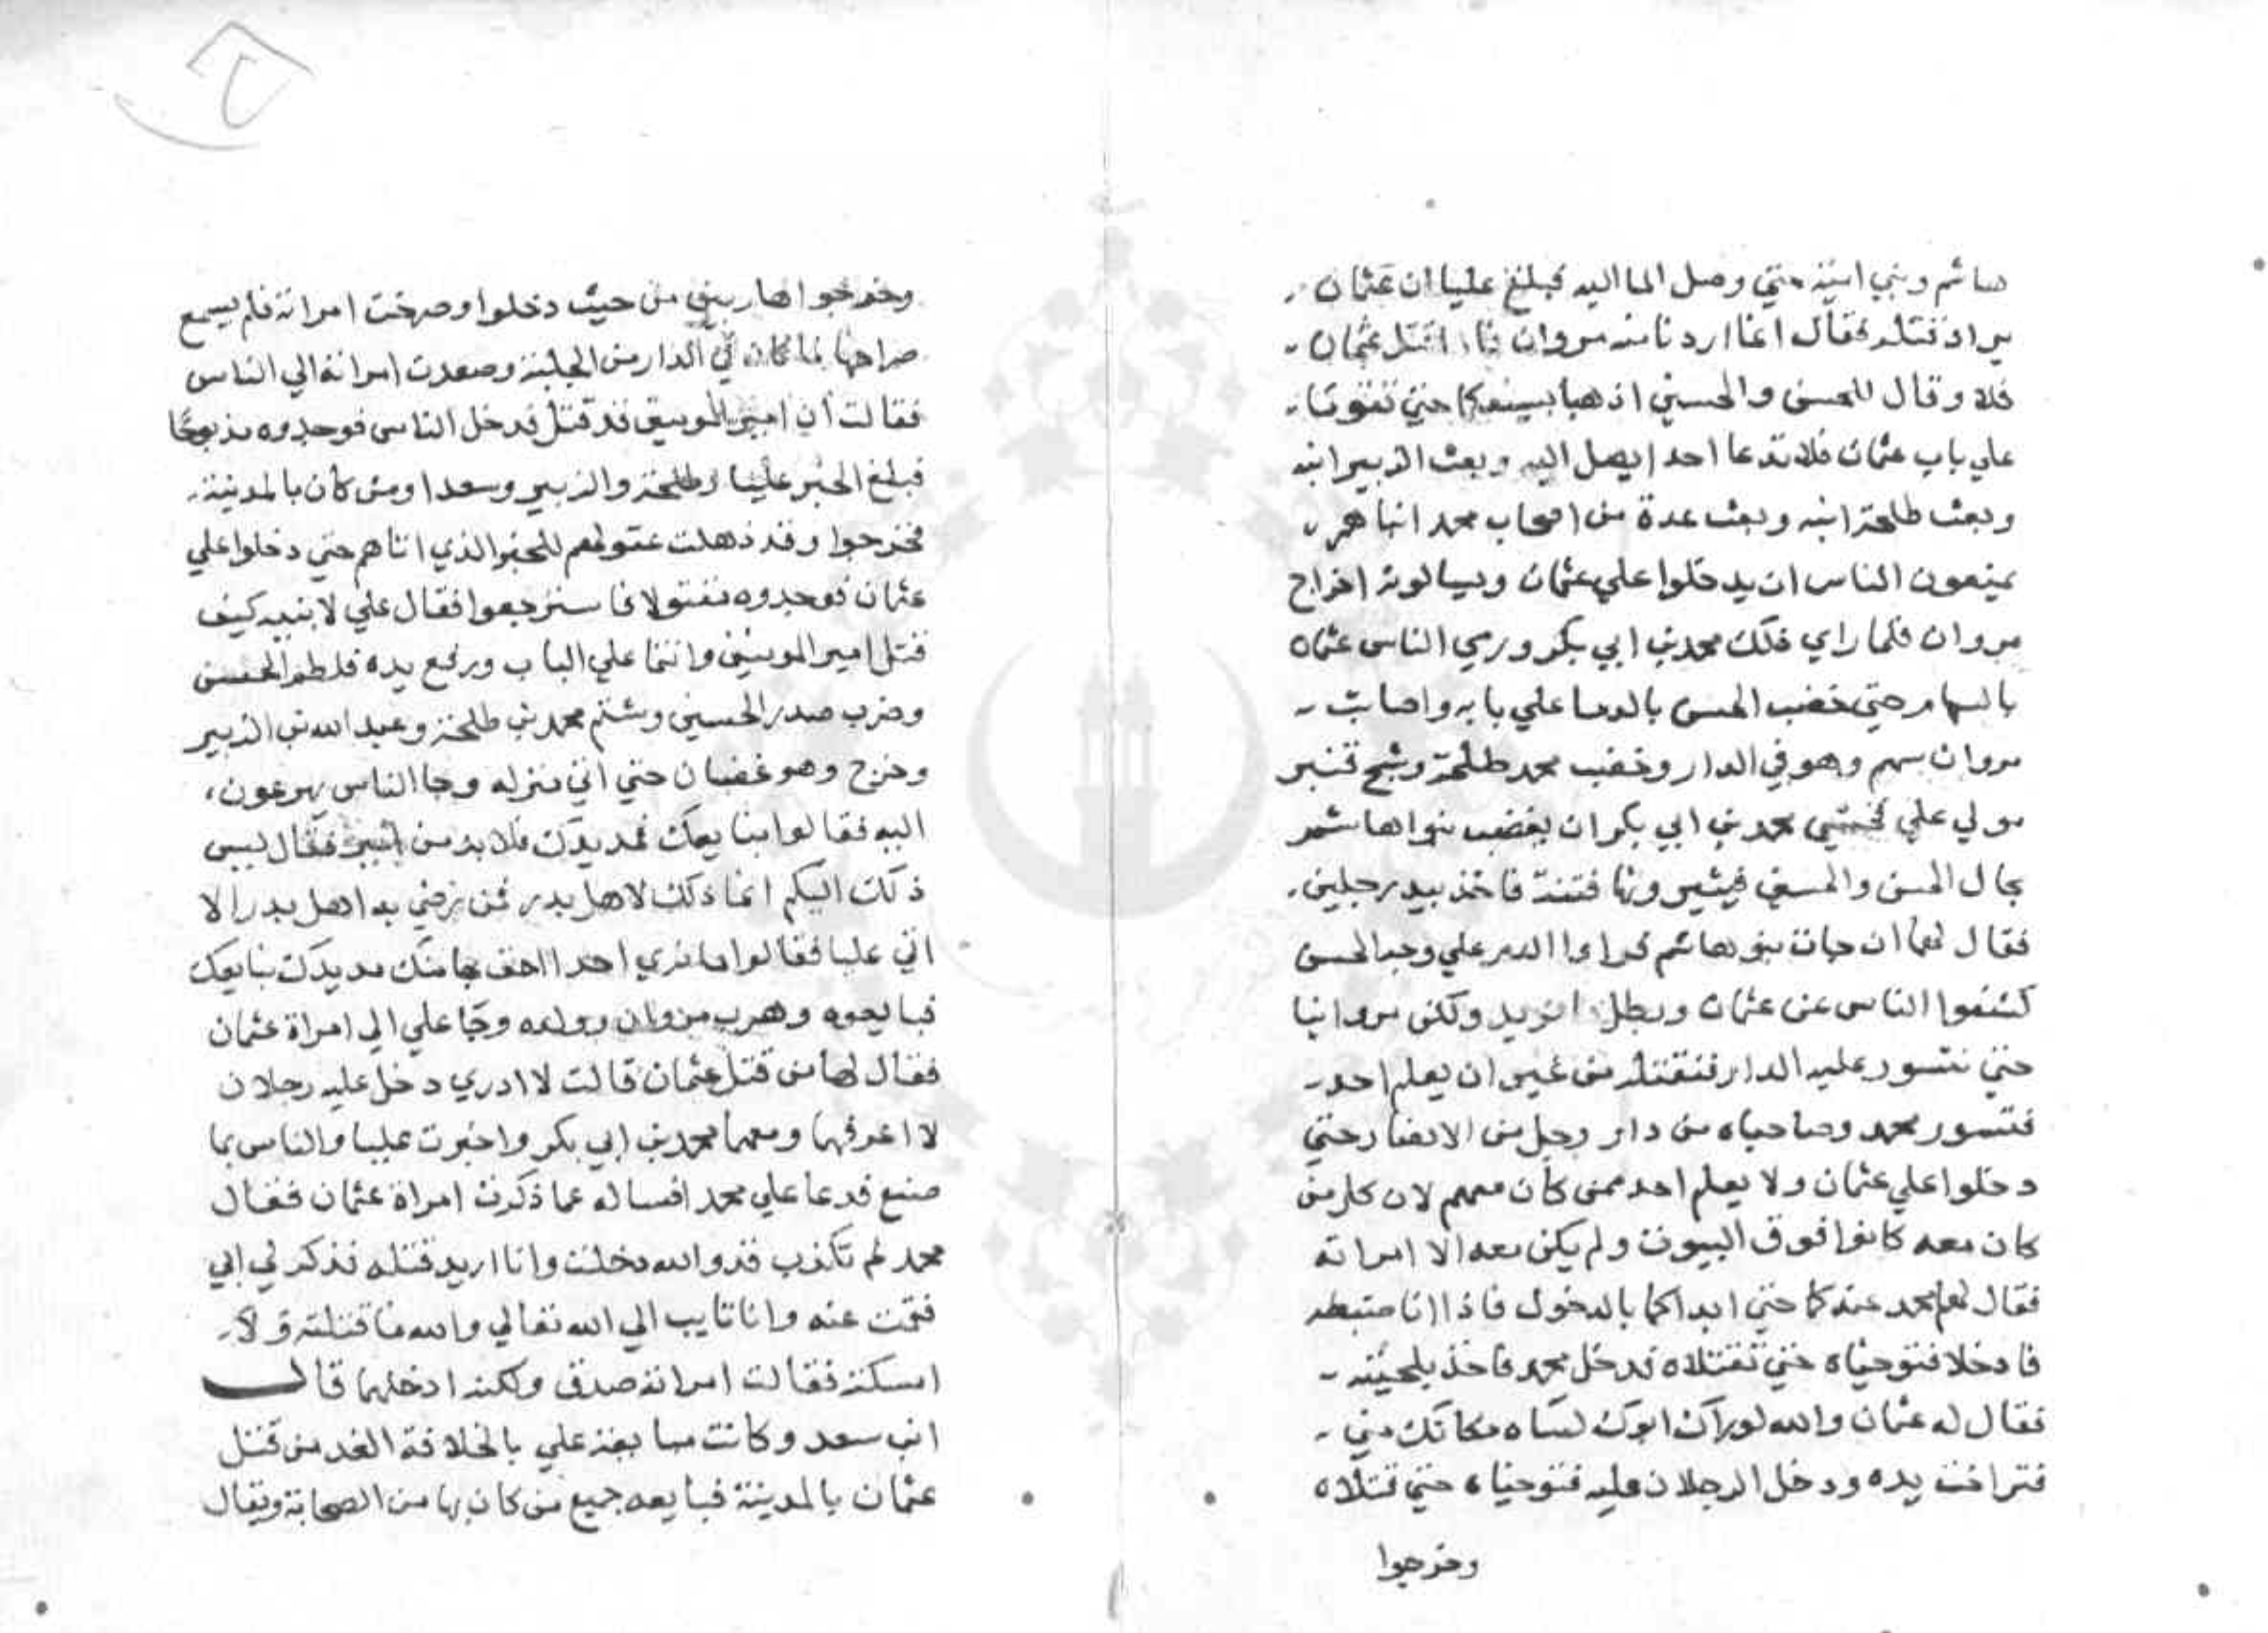 هاشم وبني امية حتي وصل الما اليه فبلغ عليا ان عثمان
يراد قتله فقال انما اردنا منه مروان فاما قتل عثمان
فلا وقال للحسن والحسين اذهبا بسيفكما حتي تقوما
علي باب عثمان فلا تدعا احدا يصل اليه وبعث الزبير ابنه
وبعث طلحة ابنه وبعث عدة من اصحاب محمد ابناهم
يمنعون الناس ان يدخلوا علي عثمان ويسالونه اخراج
مروان فلما راي ذلك محمد بن ابي بكر ورمي الناس عثمان
بالسهام حتي خضب الحسن بالدما علي بابه واصاب
مروان سهم وهو في الدار وخضب محمد طلحة وشج قنبر
مولي علي فخشي محمد بن ابي بكر ان يغضب بنوا هاشم
بحال الحسن والحسين فيثيرونها فتنة فاخذ بيد رجلين
فقال لهما ان جات بنو هاشم فراوا الدم علي وجه الحسن
كشفوا الناس عن عثمان وبطل ما نريد ولكن مروا بنا
حتي نتسور عليه الدار فنقتله من غير ان يعلم احد
فتسور محمد وصاحباه من دار رجل من الانصار حتي
دخلوا علي عثمان ولا يعلم احد ممن كان معهم لان كل من
كان معه كانوا فوق البيوت ولم يكن معه الا امراته
فقال لهما محمد حتي ابداكما بالدخول فاذا انا ضبطه
فادخلا فتوجياه حتي تقتلاه فدخل محمد فاخذ بلحيته
فقال له عثمان والله لو راك ابوك لساه مكانك مني
فتراخت يده ودخل الرجلان عليه فتوجياه حتي قتلاه
وخرجوا
وخرجوا هاربين من حيث دخلوا وصرخت امراته فلم يسمع
صراخها لما كان في الدار من الجلبة وصعدت امراته الي الناس
فقالت ان امير المومنين قد قتل فدخل الناس فوجدوه مذبوحا
فبلغ الخبر عليا وطلحة والزبير وسعدا ومن كان بالمدينة
فخرجوا وقد ذهلت عقولهم للخبر الذي اتاهم حتي دخلوا علي
عثمان فوجدوه مقتولا فاسترجعوا فقال علي لابنيه كيف
قتل امير المومنين وانتما علي الباب ورفع يده فلطم الحسن
وضرب صدر الحسين وشتم محمد بن طلحة وعبد الله بن الزبير
وخرج وهو غضبان حتي اتي منزله وجا الناس يهرعون
اليه فقالوا نبايعك فمد يدك فلا بد من امير فقال ليس
ذلك اليكم انما ذلك لاهل بدر فمن رضي به اهل بدر الا
اتي عليا فقالوا ما نري احدا احق بها منك مد يدك نبايعك
فبايعوه وهرب مروان وولده وجا علي الي امراة عثمان
فقال لها من قتل عثمان قالت لا ادري دخل عليه رجلان
لا اعرفهما ومعهما محمد بن ابي بكر واخبرت عليا والناس بما
صنع فدعا علي محمد افساله عما ذكرت امراة عثمان فقال
محمد لم تكذب قد والله دخلت وانا اريد قتله فذكر لي ابي
فقمت عنه وانا تايب الي الله تعالي والله ما قتلته ولا
امسكته فقالت امراته صدق ولكنه ادخلهما قال
ابن سعد وكانت مبايعة علي بالخلافة الغد من قتل
عثمان بالمدينة فبايعه جميع من كان بها من الصحابة ويقال